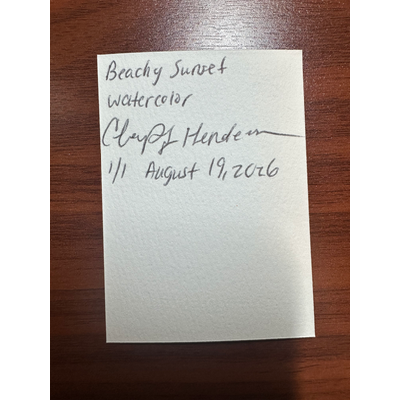 Beachy Sunset
watercolor
Henderson
1/1 August 19, 2026